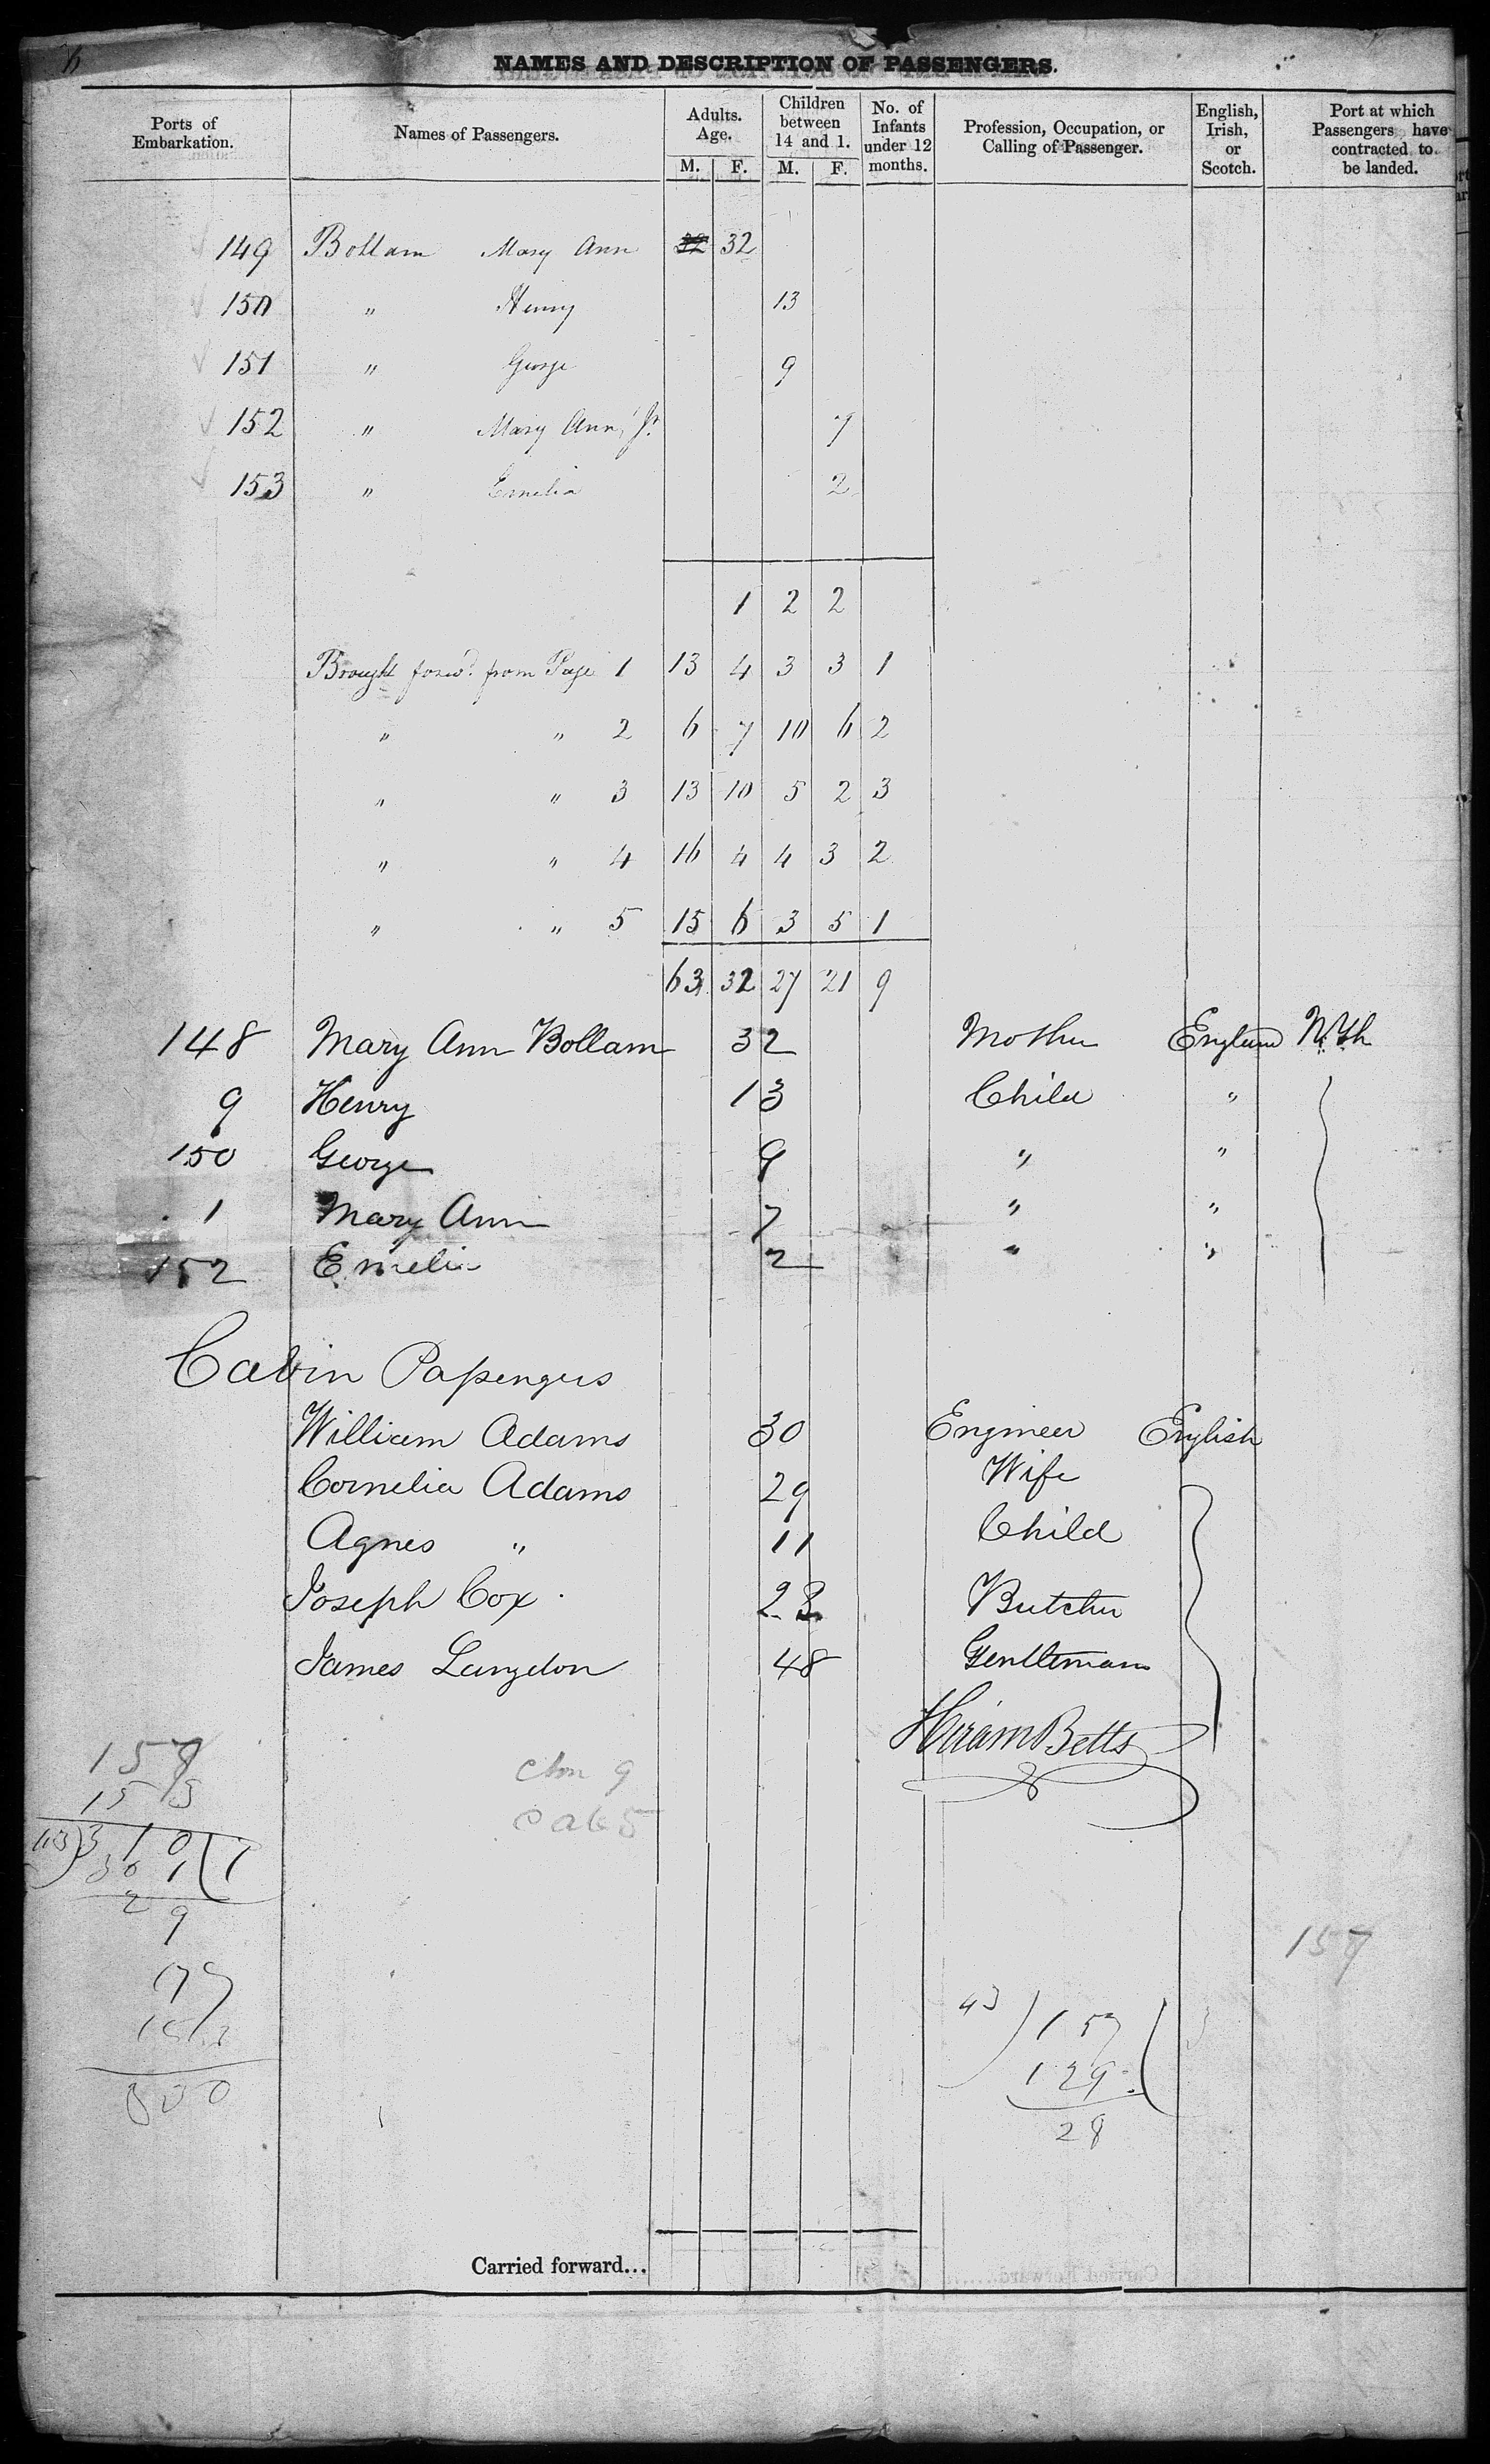 6
NAMES AND DESCRIPTION OF PASSENGERS.
Ports of Embarkation. Names of Passengers. Adults. Age. M. F. Children between 14 and 1. M. F. No. of Infants under 12 months. Profession, Occupation, or Calling of Passenger. English, Irish, or Scotch. Port at which Passengers have contracted to be landed.
149 Bollam Mary Ann 32 32
150 " Henry 13
151 " George 9
152 " Mary Ann, Jr. 7
153 " Emelia 2
1 2 2
Brought forwd. from Page 1 13 4 3 3 1
" " 2 6 7 10 6 2
" " 3 13 10 5 2 3
" " 4 16 4 4 3 2
" " 5 15 6 3 5 1
63 32 27 21 9
148 Mary Ann Bollam 32 Mother England
9 Henry 13 Child "
150 George 9 " "
1 Mary Ann 7 " "
152 Emelia 2 " "
Cabin Passengers
William Adams 30 Engineer English
Cornelia Adams 29 Wife
Agnes " 11 Child
Joseph Cox 23 Butcher
James Langdon 48 Gentleman
Hiram Betts
157
153
310
301
29
157
43 ) 157 (
129
28
Carried forward...